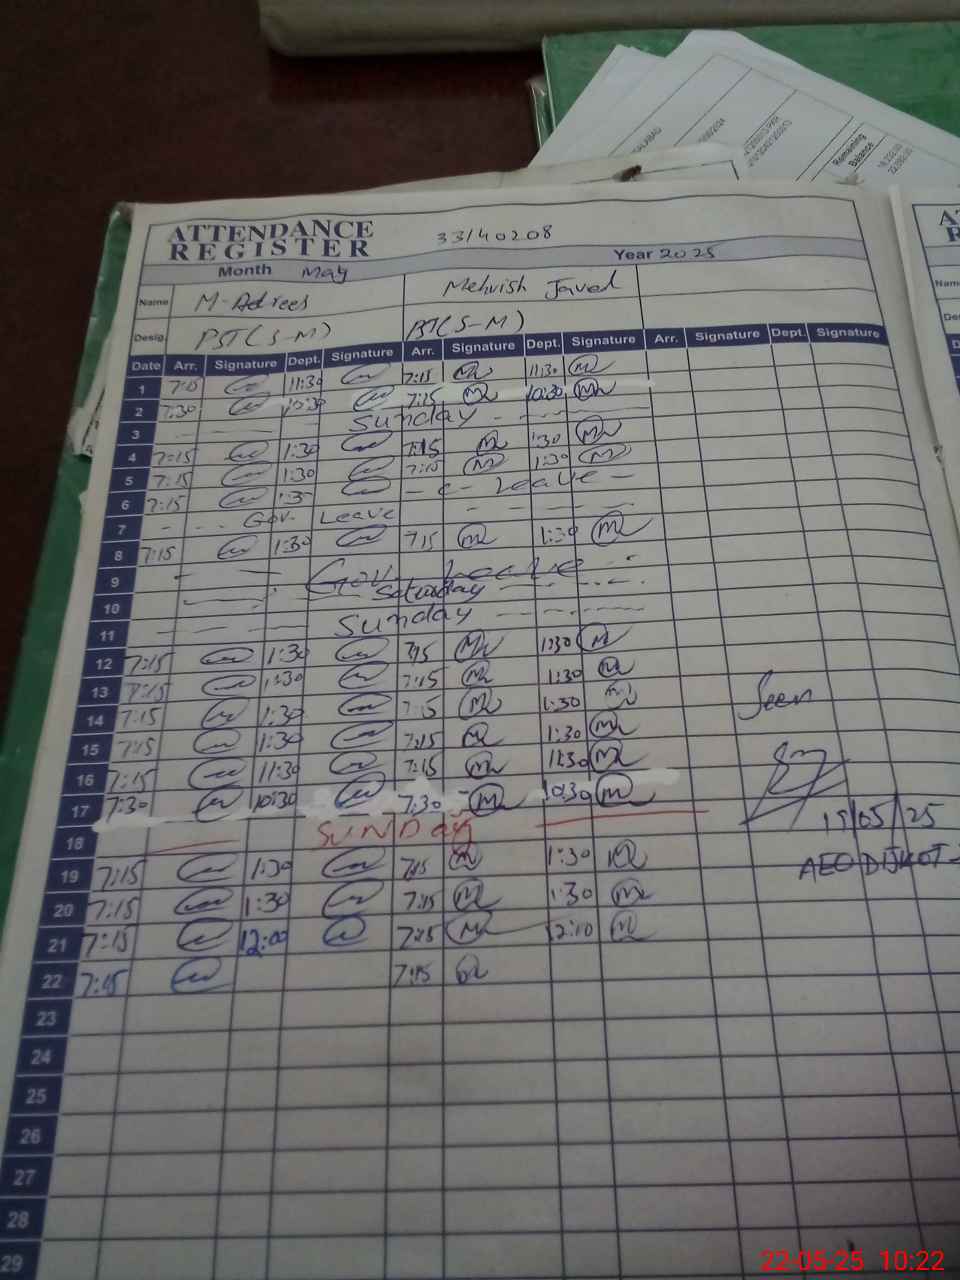 ATTENDANCE
REGISTER
33/40208
Month May Year 2025
Name M-Adrees Mehvish Javed
Desig. PST(S-M)
Date Arr. Signature Dept. Signature Arr. Signature Dept. Signature Arr. Signature Dept. Signature
1 7:15 11:30 7:15 11:30
2 7:30 10:30 7:15 10:30
3 Sunday
4 7:15 1:30 7:15 1:30
5 7:15 1:30 7:15 1:30
6 7:15 1:30 - c - Leave -
7 Gov. Leave
8 7:15 1:30 7:15 1:30
9 Gov. Leave
10 Saturday
11 Sunday
12 7:15 1:30 7:15 1:30
13 7:15 1:30 7:15 1:30
14 7:15 1:30 7:15 1:30
15 7:15 1:30 7:15 1:30
16 7:15 11:30 7:15 11:30
17 7:30 10:30 7:30 10:30
18 SUNDay
19 7:15 1:30 7:15 1:30
20 7:15 1:30 7:15 1:30
21 7:15 12:00 7:15 12:00
22 7:15 7:15
23
24
25
26
27
28
29
Seen
19/05/25
AEO DIJKOT
Remaining
Balance
Name
22-05-25 10:22